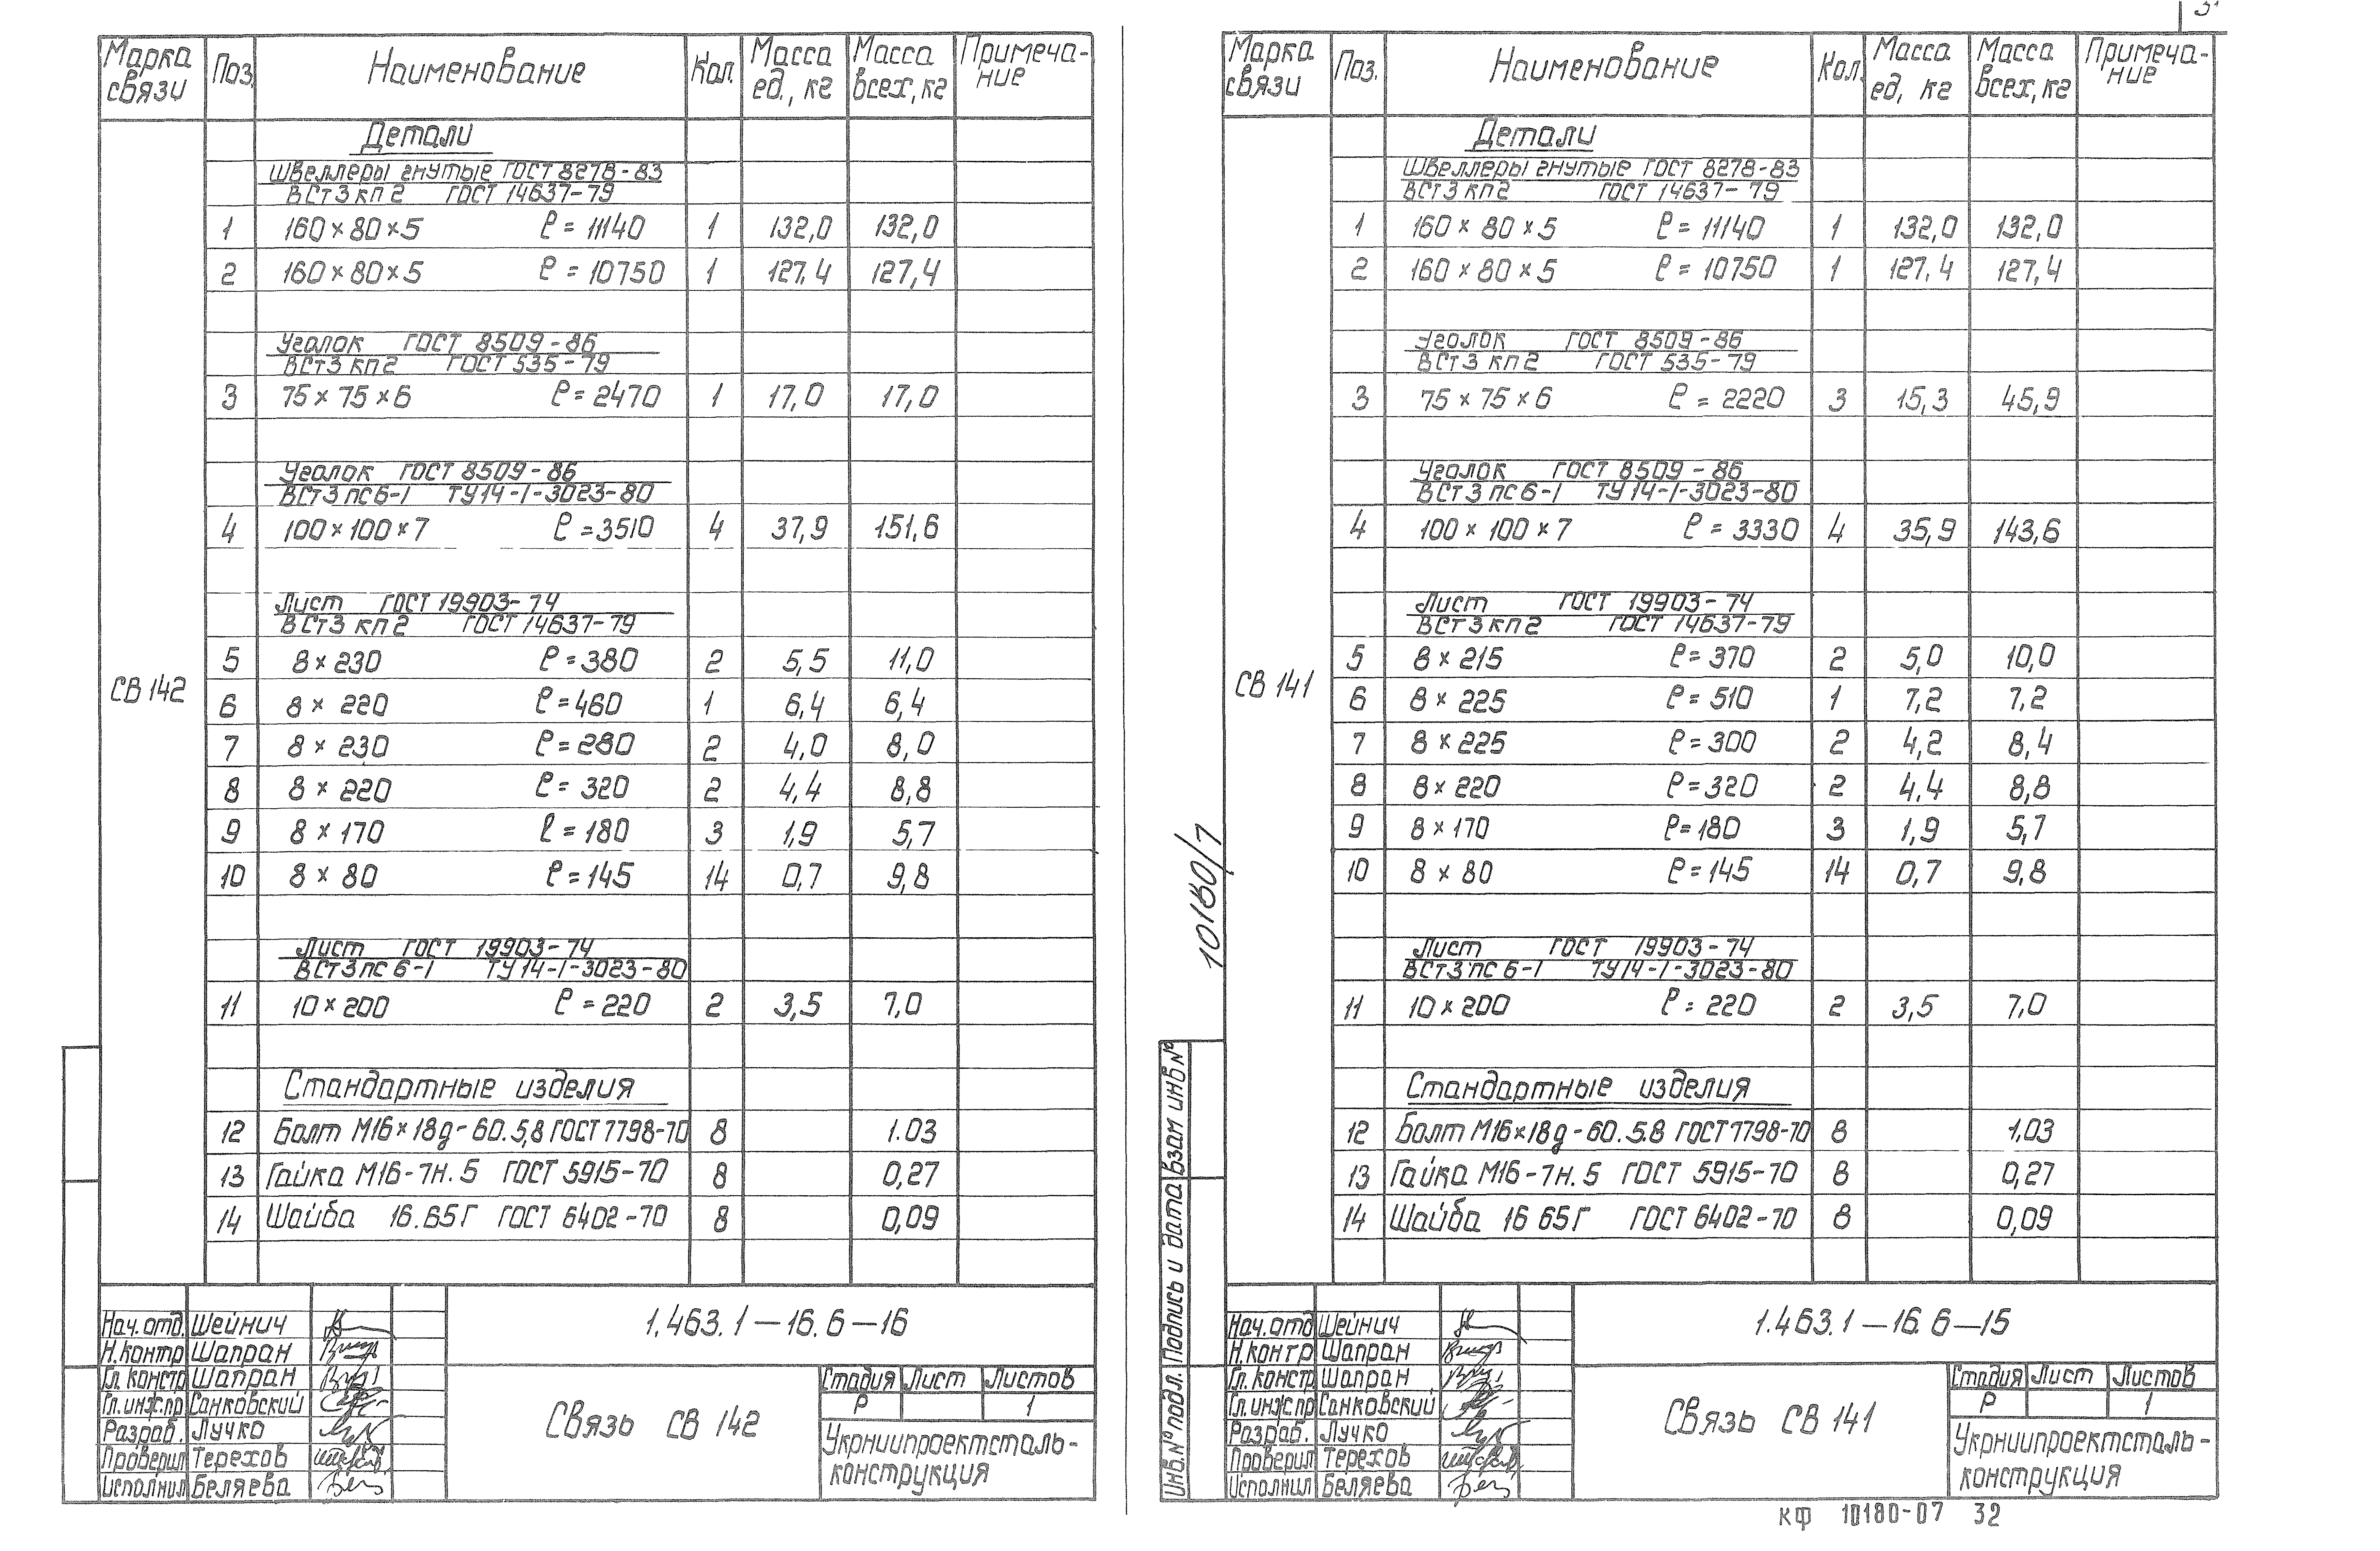 Марка связи Поз. Наименование Кол. Масса ед., кг Масса всех, кг Примеча-ние
Детали
Швеллеры гнутые ГОСТ 8278-83
ВСт3кп2 ГОСТ 14637-79
1 160×80×5 ℓ=11140 1 132,0 132,0
2 160×80×5 ℓ=10750 1 127,4 127,4
Уголок ГОСТ 8509-86
ВСт3кп2 ГОСТ 535-79
3 75×75×6 ℓ=2470 1 17,0 17,0
Уголок ГОСТ 8509-86
ВСт3пс6-1 ТУ14-1-3023-80
4 100×100×7 ℓ=3510 4 37,9 151,6
Лист ГОСТ 19903-74
ВСт3кп2 ГОСТ 14637-79
5 8×230 ℓ=380 2 5,5 11,0
СВ 142
6 8×220 ℓ=460 1 6,4 6,4
7 8×230 ℓ=280 2 4,0 8,0
8 8×220 ℓ=320 2 4,4 8,8
9 8×170 ℓ=180 3 1,9 5,7
10 8×80 ℓ=145 14 0,7 9,8
Лист ГОСТ 19903-74
ВСт3пс6-1 ТУ14-1-3023-80
11 10×200 ℓ=220 2 3,5 7,0
Стандартные изделия
12 Болт М16×18g-60.5,8 ГОСТ 7798-70 8 1.03
13 Гайка М16-7Н.5 ГОСТ 5915-70 8 0,27
14 Шайба 16.65Г ГОСТ 6402-70 8 0,09
1.463.1-16.6-16
Нач.отд. Шейнич
Н.контр Шапран
Гл.констр Шапран
Гл.инж.пр Санковский
Разраб. Лучко
Проверил Терехов
Исполнил Беляева
Связь СВ 142
Стадия Лист Листов
Р 1
Укрниипроектсталь-
конструкция
Марка связи Поз. Наименование Кол. Масса ед, кг Масса всех, кг Примеча-ние
Детали
Швеллеры гнутые ГОСТ 8278-83
ВСт3кп2 ГОСТ 14637-79
1 160×80×5 ℓ=11140 1 132,0 132,0
2 160×80×5 ℓ=10750 1 127,4 127,4
Уголок ГОСТ 8509-86
ВСт3кп2 ГОСТ 535-79
3 75×75×6 ℓ=2220 3 15,3 45,9
Уголок ГОСТ 8509-86
ВСт3пс6-1 ТУ14-1-3023-80
4 100×100×7 ℓ=3330 4 35,9 143,6
Лист ГОСТ 19903-74
ВСт3кп2 ГОСТ 14637-79
5 8×215 ℓ=370 2 5,0 10,0
СВ 141
6 8×225 ℓ=510 1 7,2 7,2
7 8×225 ℓ=300 2 4,2 8,4
8 8×220 ℓ=320 2 4,4 8,8
9 8×170 ℓ=180 3 1,9 5,7
10 8×80 ℓ=145 14 0,7 9,8
Лист ГОСТ 19903-74
ВСт3пс6-1 ТУ14-1-3023-80
11 10×200 ℓ=220 2 3,5 7,0
Стандартные изделия
12 Болт М16×18g-60.5.8 ГОСТ 7798-70 8 1,03
13 Гайка М16-7Н.5 ГОСТ 5915-70 8 0,27
14 Шайба 16 65Г ГОСТ 6402-70 8 0,09
10180/7
Инв.№ подл. Подпись и дата Взам инв №
1.463.1-16.6-15
Нач.отд Шейнич
Н.контр Шапран
Гл.констр Шапран
Гл.инж.пр Санковский
Разраб. Лучко
Проверил Терехов
Исполнил Беляева
Связь СВ 141
Стадия Лист Листов
Р 1
Укрниипроектсталь-
конструкция
КФ 10180-07 32